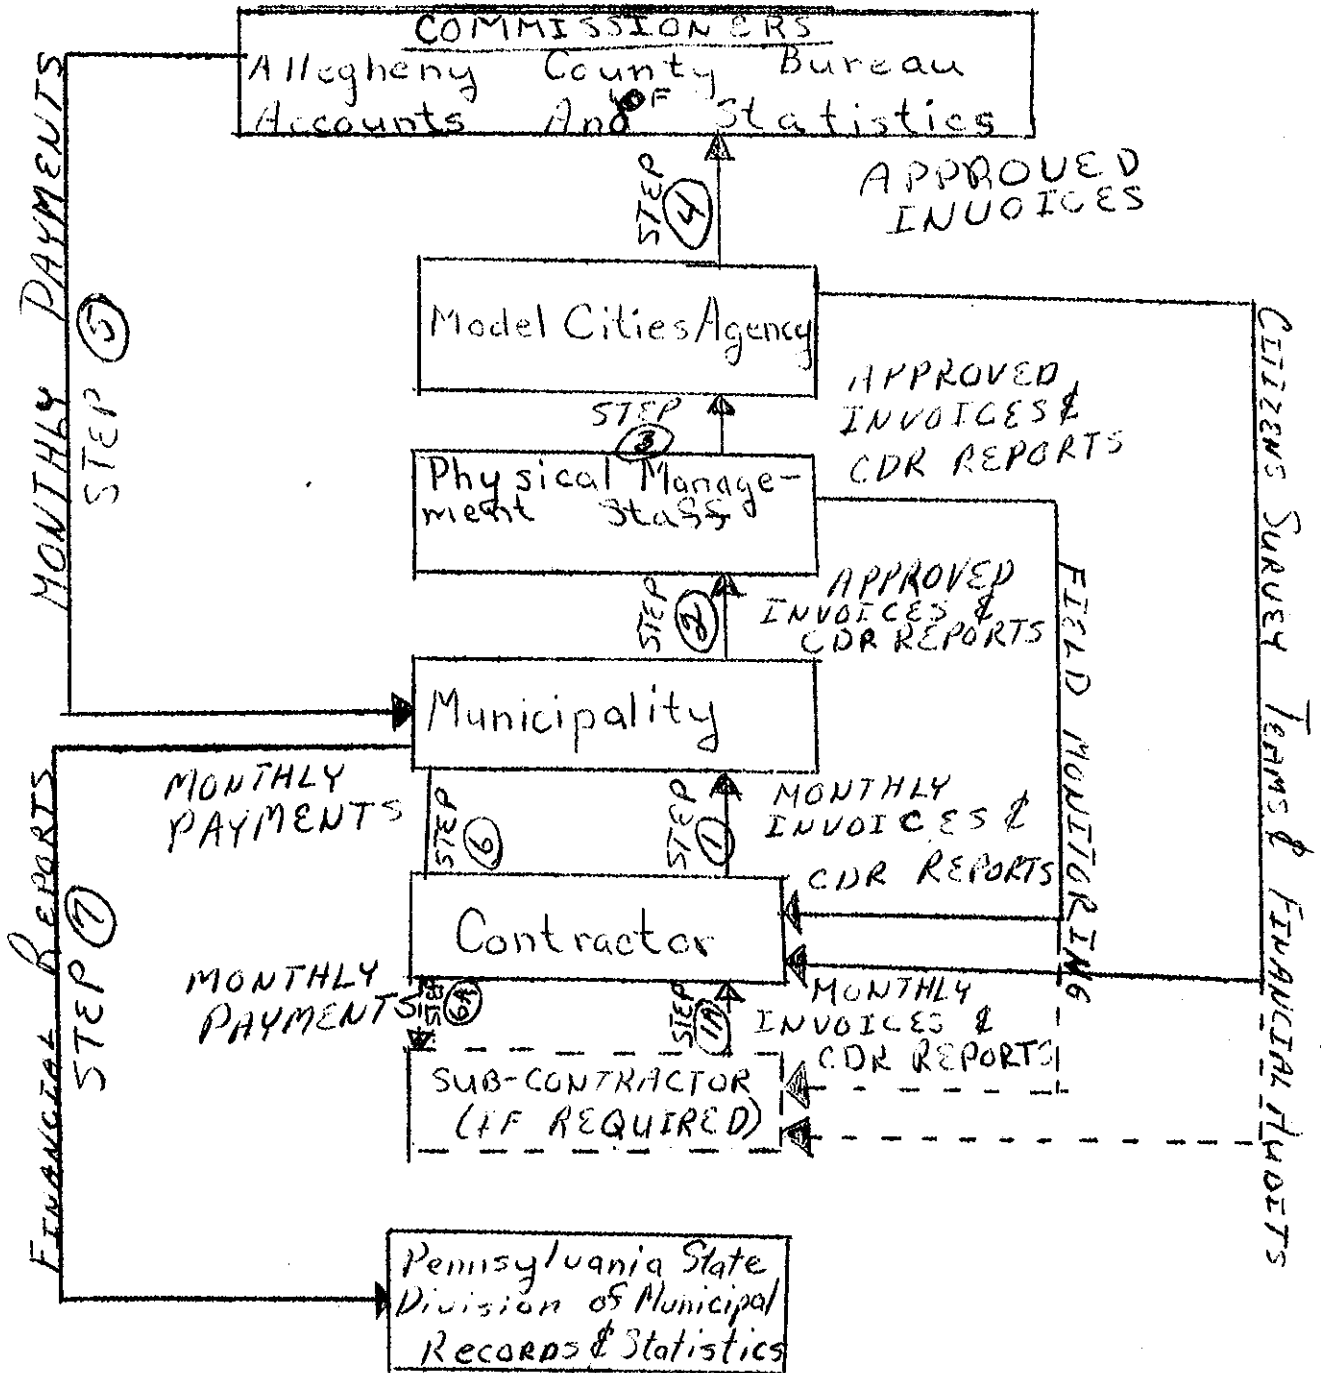 COMMISSIONERS
Allegheny County Bureau
OF
Accounts And Statistics
MONTHLY PAYMENTS
STEP 5
STEP 4
APPROVED
INVOICES
Model Cities Agency
STEP
3
APPROVED
INVOICES &
CDR REPORTS
Physical Manage-
ment Staff
STEP 2
APPROVED
INVOICES &
CDR REPORTS
FIELD MONITORING
CITIZENS SURVEY TEAMS & FINANCIAL AUDITS
Municipality
MONTHLY
PAYMENTS
STEP 6
STEP 1
MONTHLY
INVOICES &
CDR REPORTS
Contractor
MONTHLY
PAYMENTS
STEP 6A
STEP 1A
MONTHLY
INVOICES &
CDR REPORTS
SUB-CONTRACTOR
(IF REQUIRED)
FINANCIAL REPORTS
STEP 7
Pennsylvania State
Division of Municipal
Records & Statistics